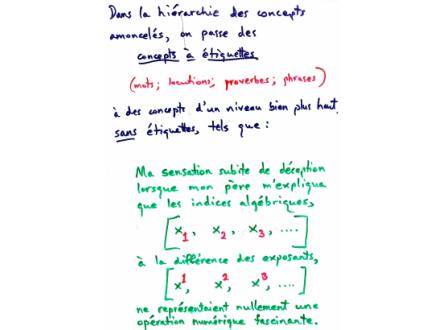 Dans la hiérarchie des concepts
amoncelés, on passe des
concepts à étiquettes
(mots; locutions; proverbes; phrases)
à des concepts d'un niveau bien plus haut,
sans étiquettes, tels que :
Ma sensation subite de déception
lorsque mon père m'expliqua
que les indices algébriques,
[x₁, x₂, x₃, ....]
à la différence des exposants,
[x¹, x², x³, ....]
ne représentaient nullement une
opération numérique fascinante.